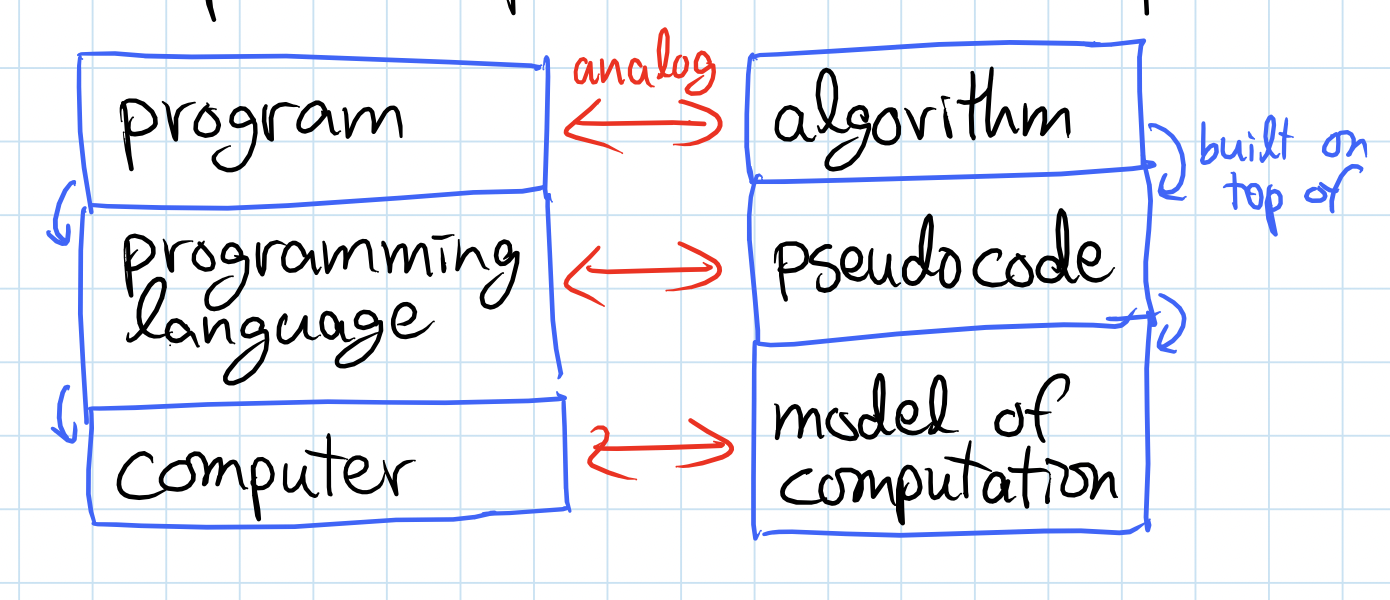 analog
program
algorithm
built on
top of
programming
language
pseudocode
computer
model of
computation